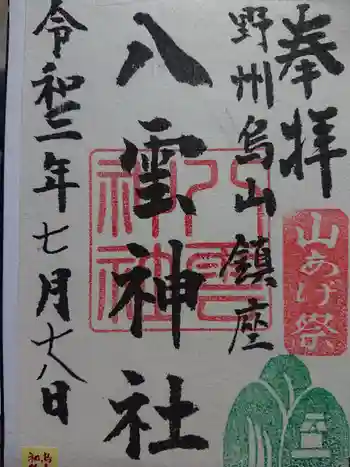 奉拝
野州烏山鎮座
八雲神社
八雲神社
山あげ祭
令和三年七月十八日